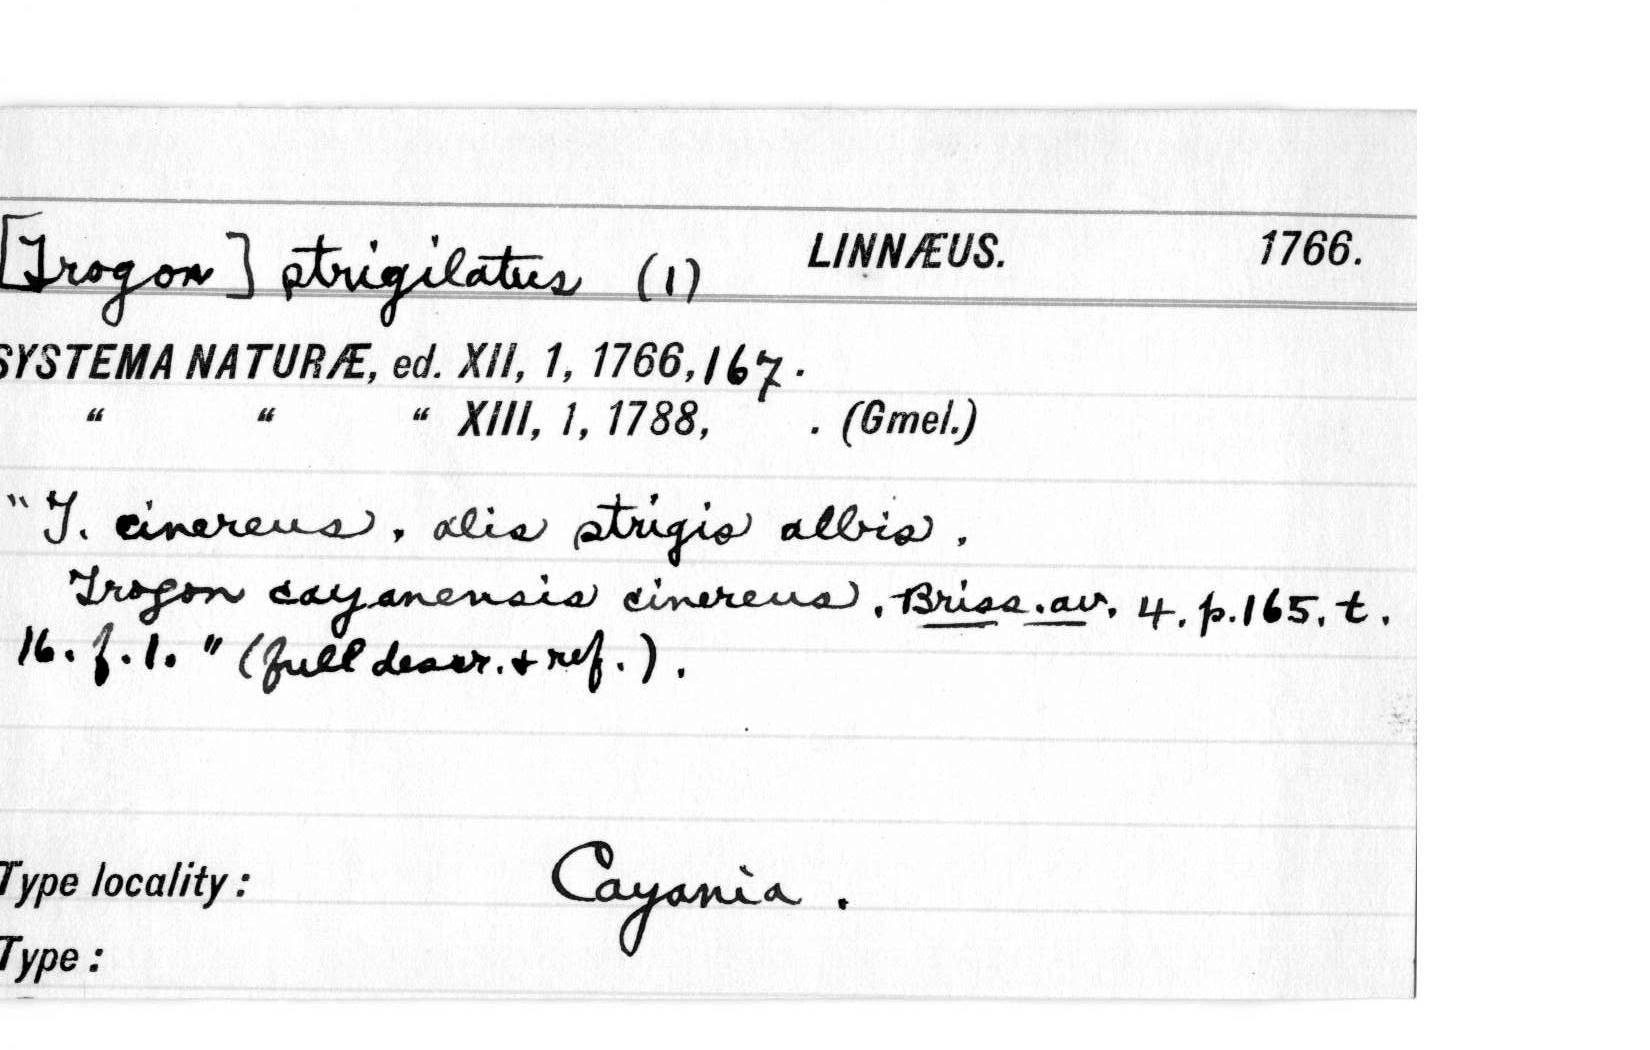 [Trogon] strigilatus (1) LINNÆUS. 1766.
SYSTEMA NATURÆ, ed. XII, 1, 1766, 167.
“ “ “ XIII, 1, 1788, . (Gmel.)
"T. cinereus, alis strigis albis.
Trogon cayanensis cinereus. Briss. av. 4. p. 165. t.
16. f. 1." (full descr. & ref.).
Type locality: Cayania.
Type: